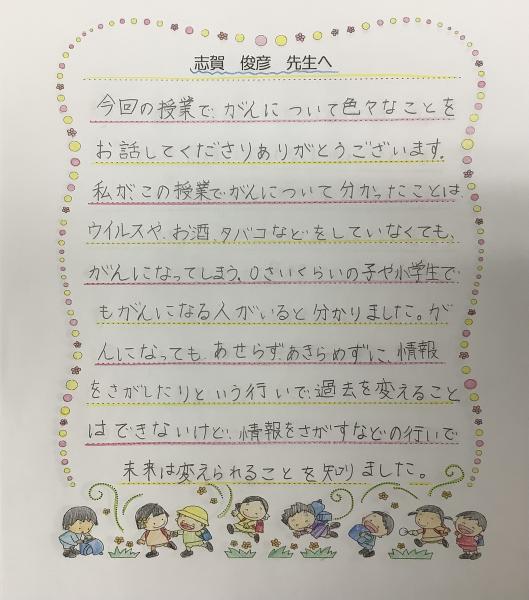 志賀 俊彦 先生へ
今回の授業で、がんについて色々なことを
お話してくださりありがとうございます。
私が、この授業でがんについて分かったことは
ウイルスや、お酒、タバコなどをしていなくても、
がんになってしまう、0さいくらいの子や小学生で
もがんになる人がいると分かりました。が
んになっても、あせらず、あきらめずに、情報
をさがしたりという行いで、過去を変えること
はできないけど、情報をさがすなどの行いで
未来は変えられることを知りました。